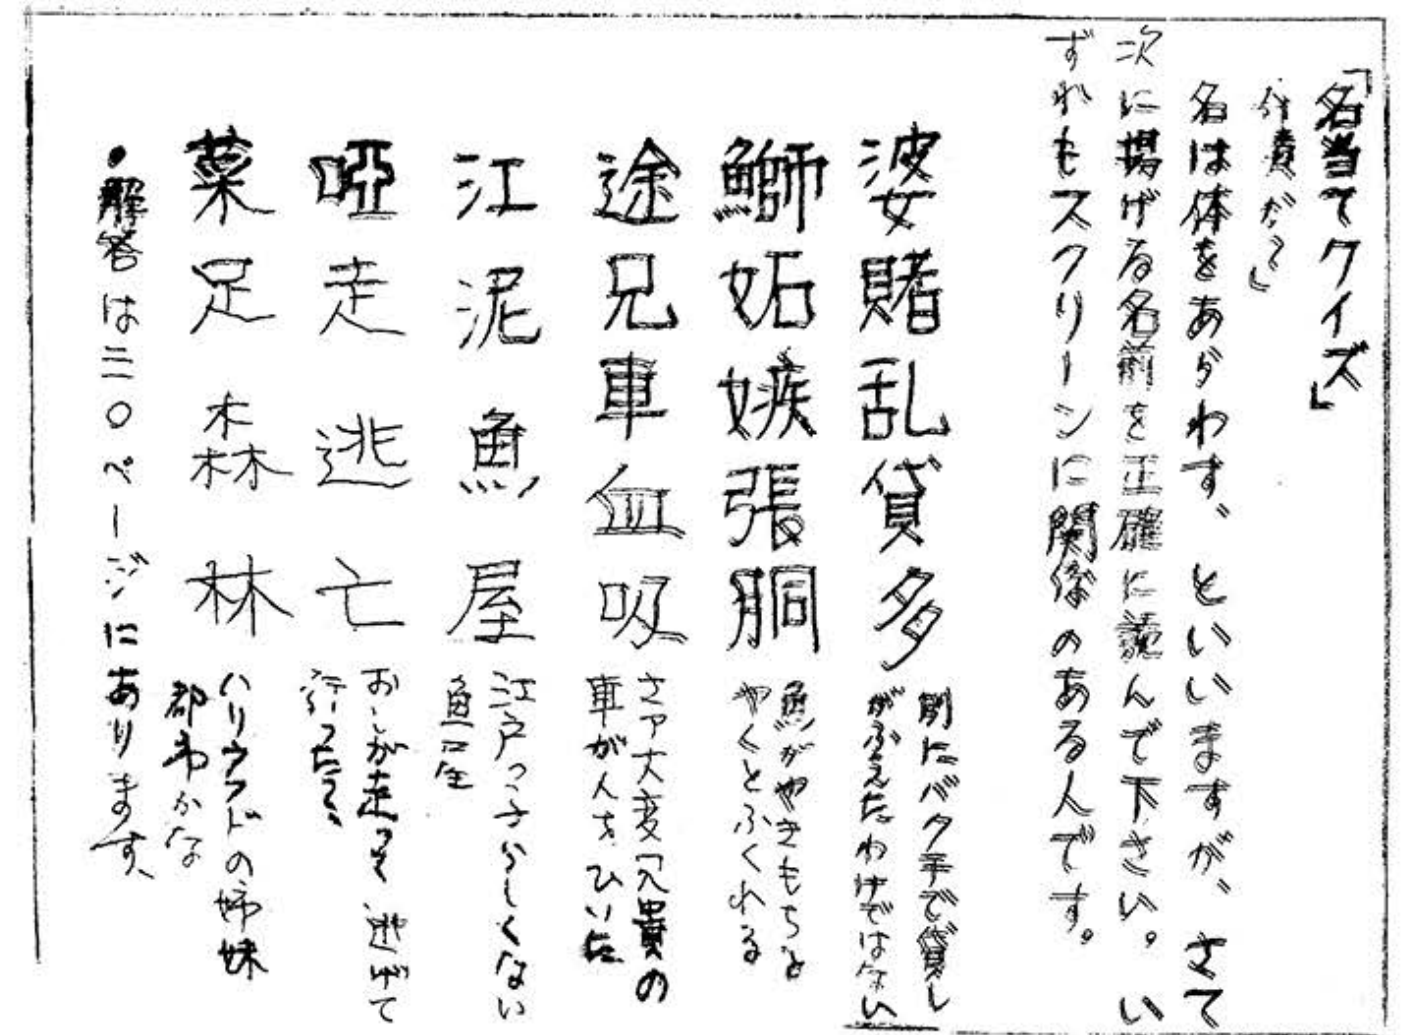 「名当てクイズ」
名は体をあらわす、といいますが、さて
次に揚げる名前を正確に読んで下さい。い
ずれもスクリーンに関係のある人です。
婆賭乱貸多
別にバク手で貸し
がふえたわけではない
鰤妬嫉張胴
魚がやきもちを
やくとふくれる
途兄車血吸
さア大変兄貴の
車が人をひいた
江泥魚屋
江戸っ子らしくない
魚屋
啞走逃亡
おしが走って逃げて
行ったて、
菜足森林
ハリウッドの姉妹
都市かな
・解答は二〇ページにあります、